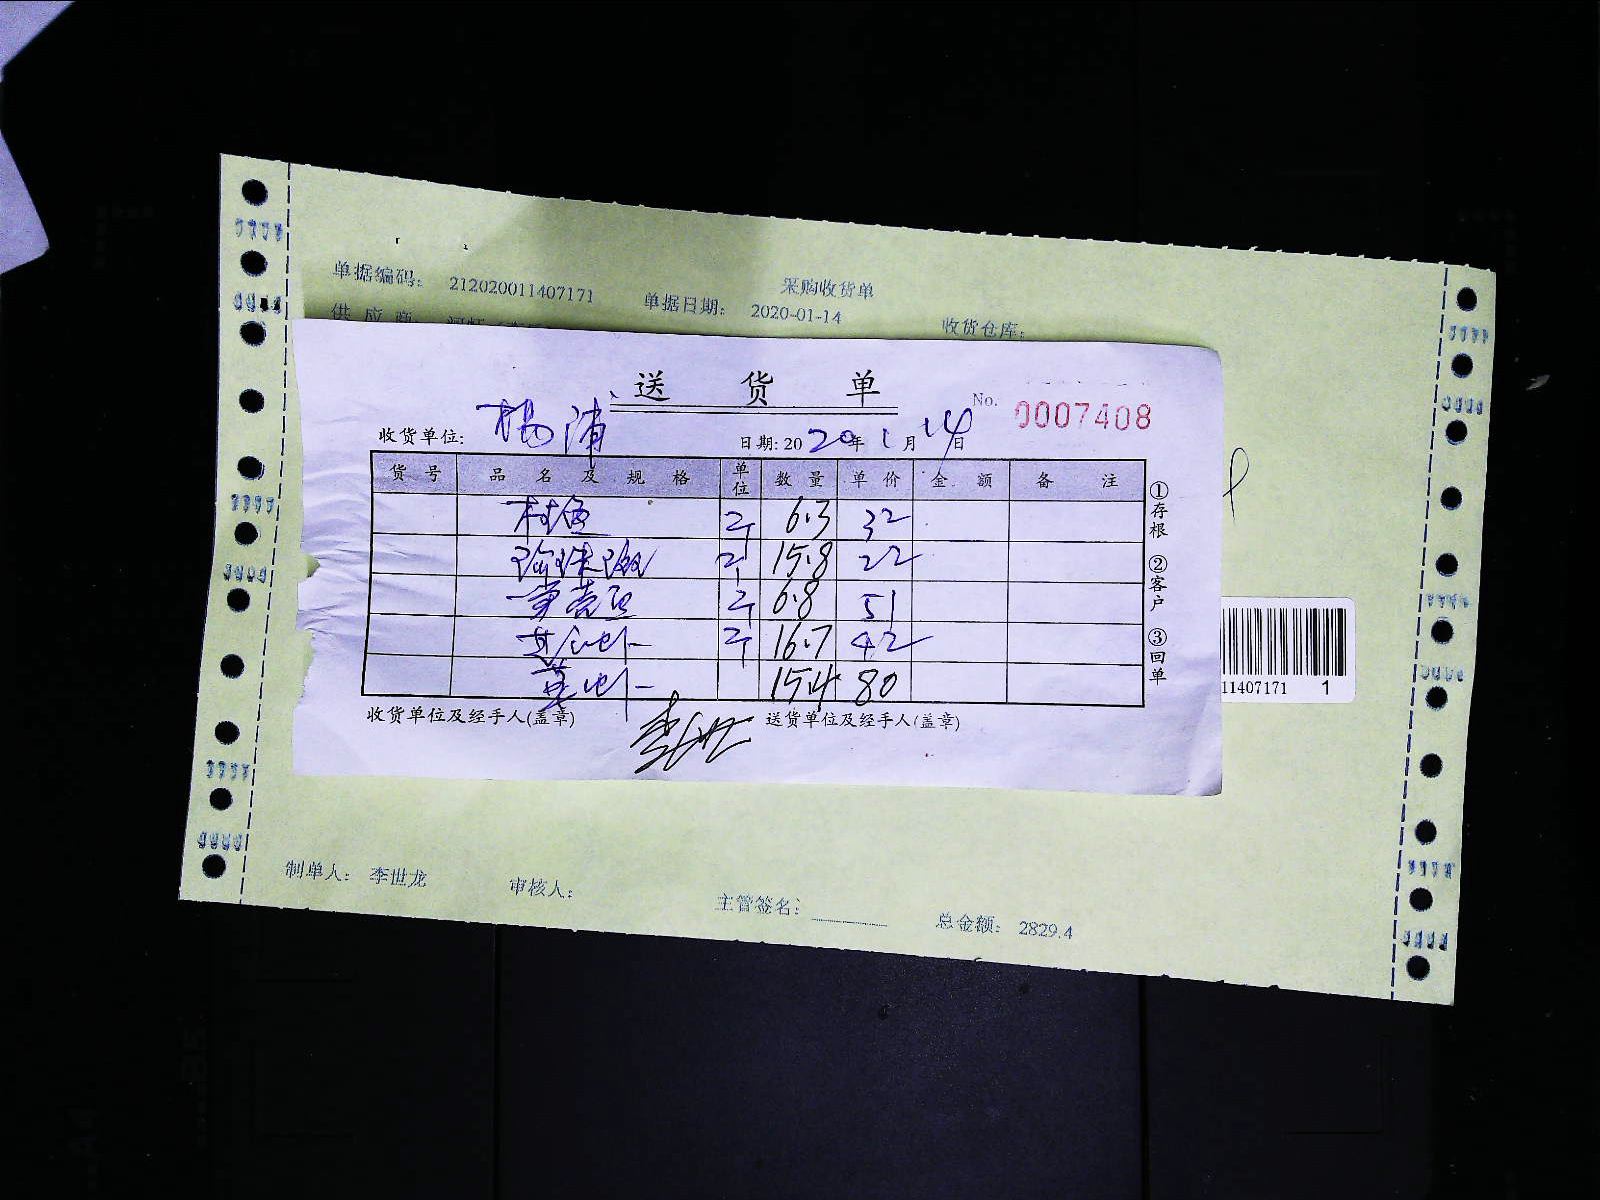 采购收货单
单据编码: 212020011407171 单据日期: 2020-01-14 收货仓库:
供应商
送货单
No. 0007408
收货单位: 杨浦 日期: 2020年1月14日
货号 品名及规格 单位 数量 单价 金额 备注
6.3 32
珍珠斑 15.8 22
6.8 51
16.7 42
15.4 80
收货单位及经手人(盖章) 送货单位及经手人(盖章)
①存根 ②客户 ③回单
11407171 1
制单人: 李世龙 审核人: 主管签名: 总金额: 2829.4